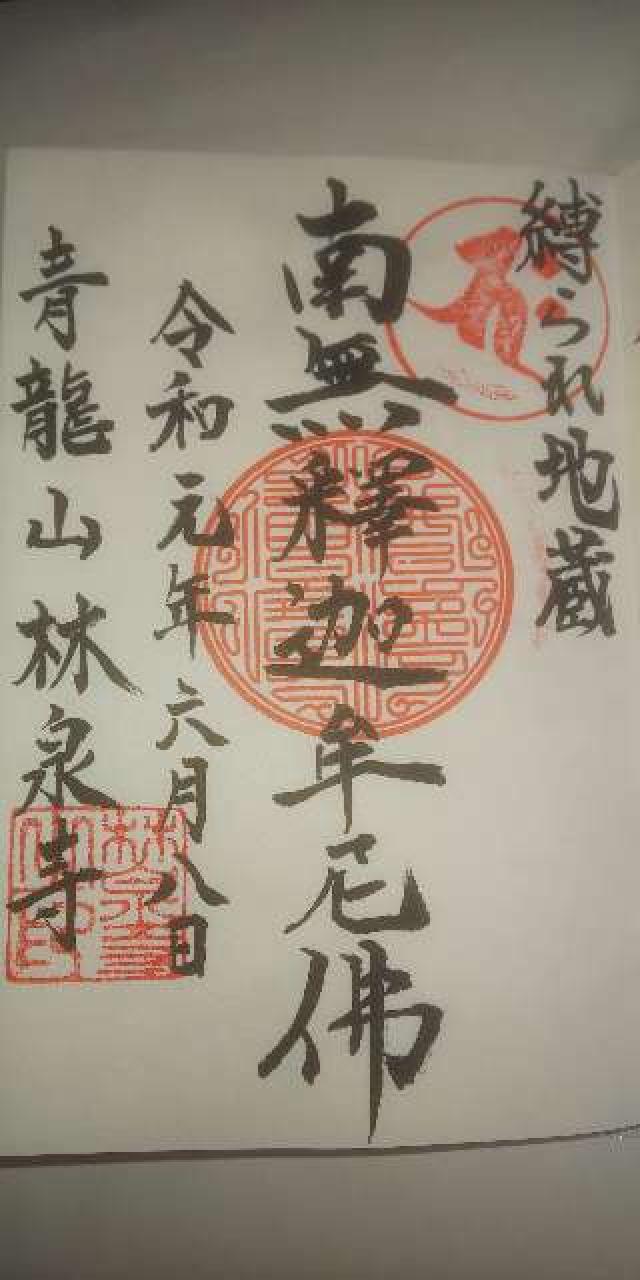 縛られ地蔵
南無釋迦牟尼佛
令和元年六月八日
青龍山林泉寺